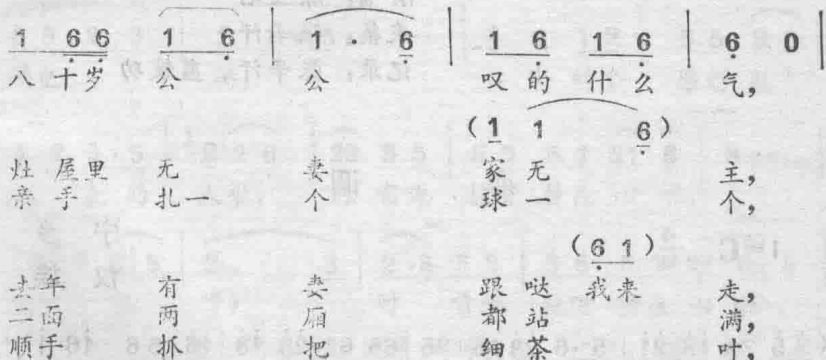 1 66 1 6 | 1 · 6 | 1 6 1 6 | 6 0 |
八 十岁 公 公 叹 的 什 么 气，
(1 1 6)
灶 屋里 无 妻 家 无 主，
亲 手 扎一 个 球 一 个，
(6 1)
去 年 有 妻 跟 哒 我 来 走，
二 面 两 厢 都 站 满，
顺 手 抓 把 细 茶 叶，